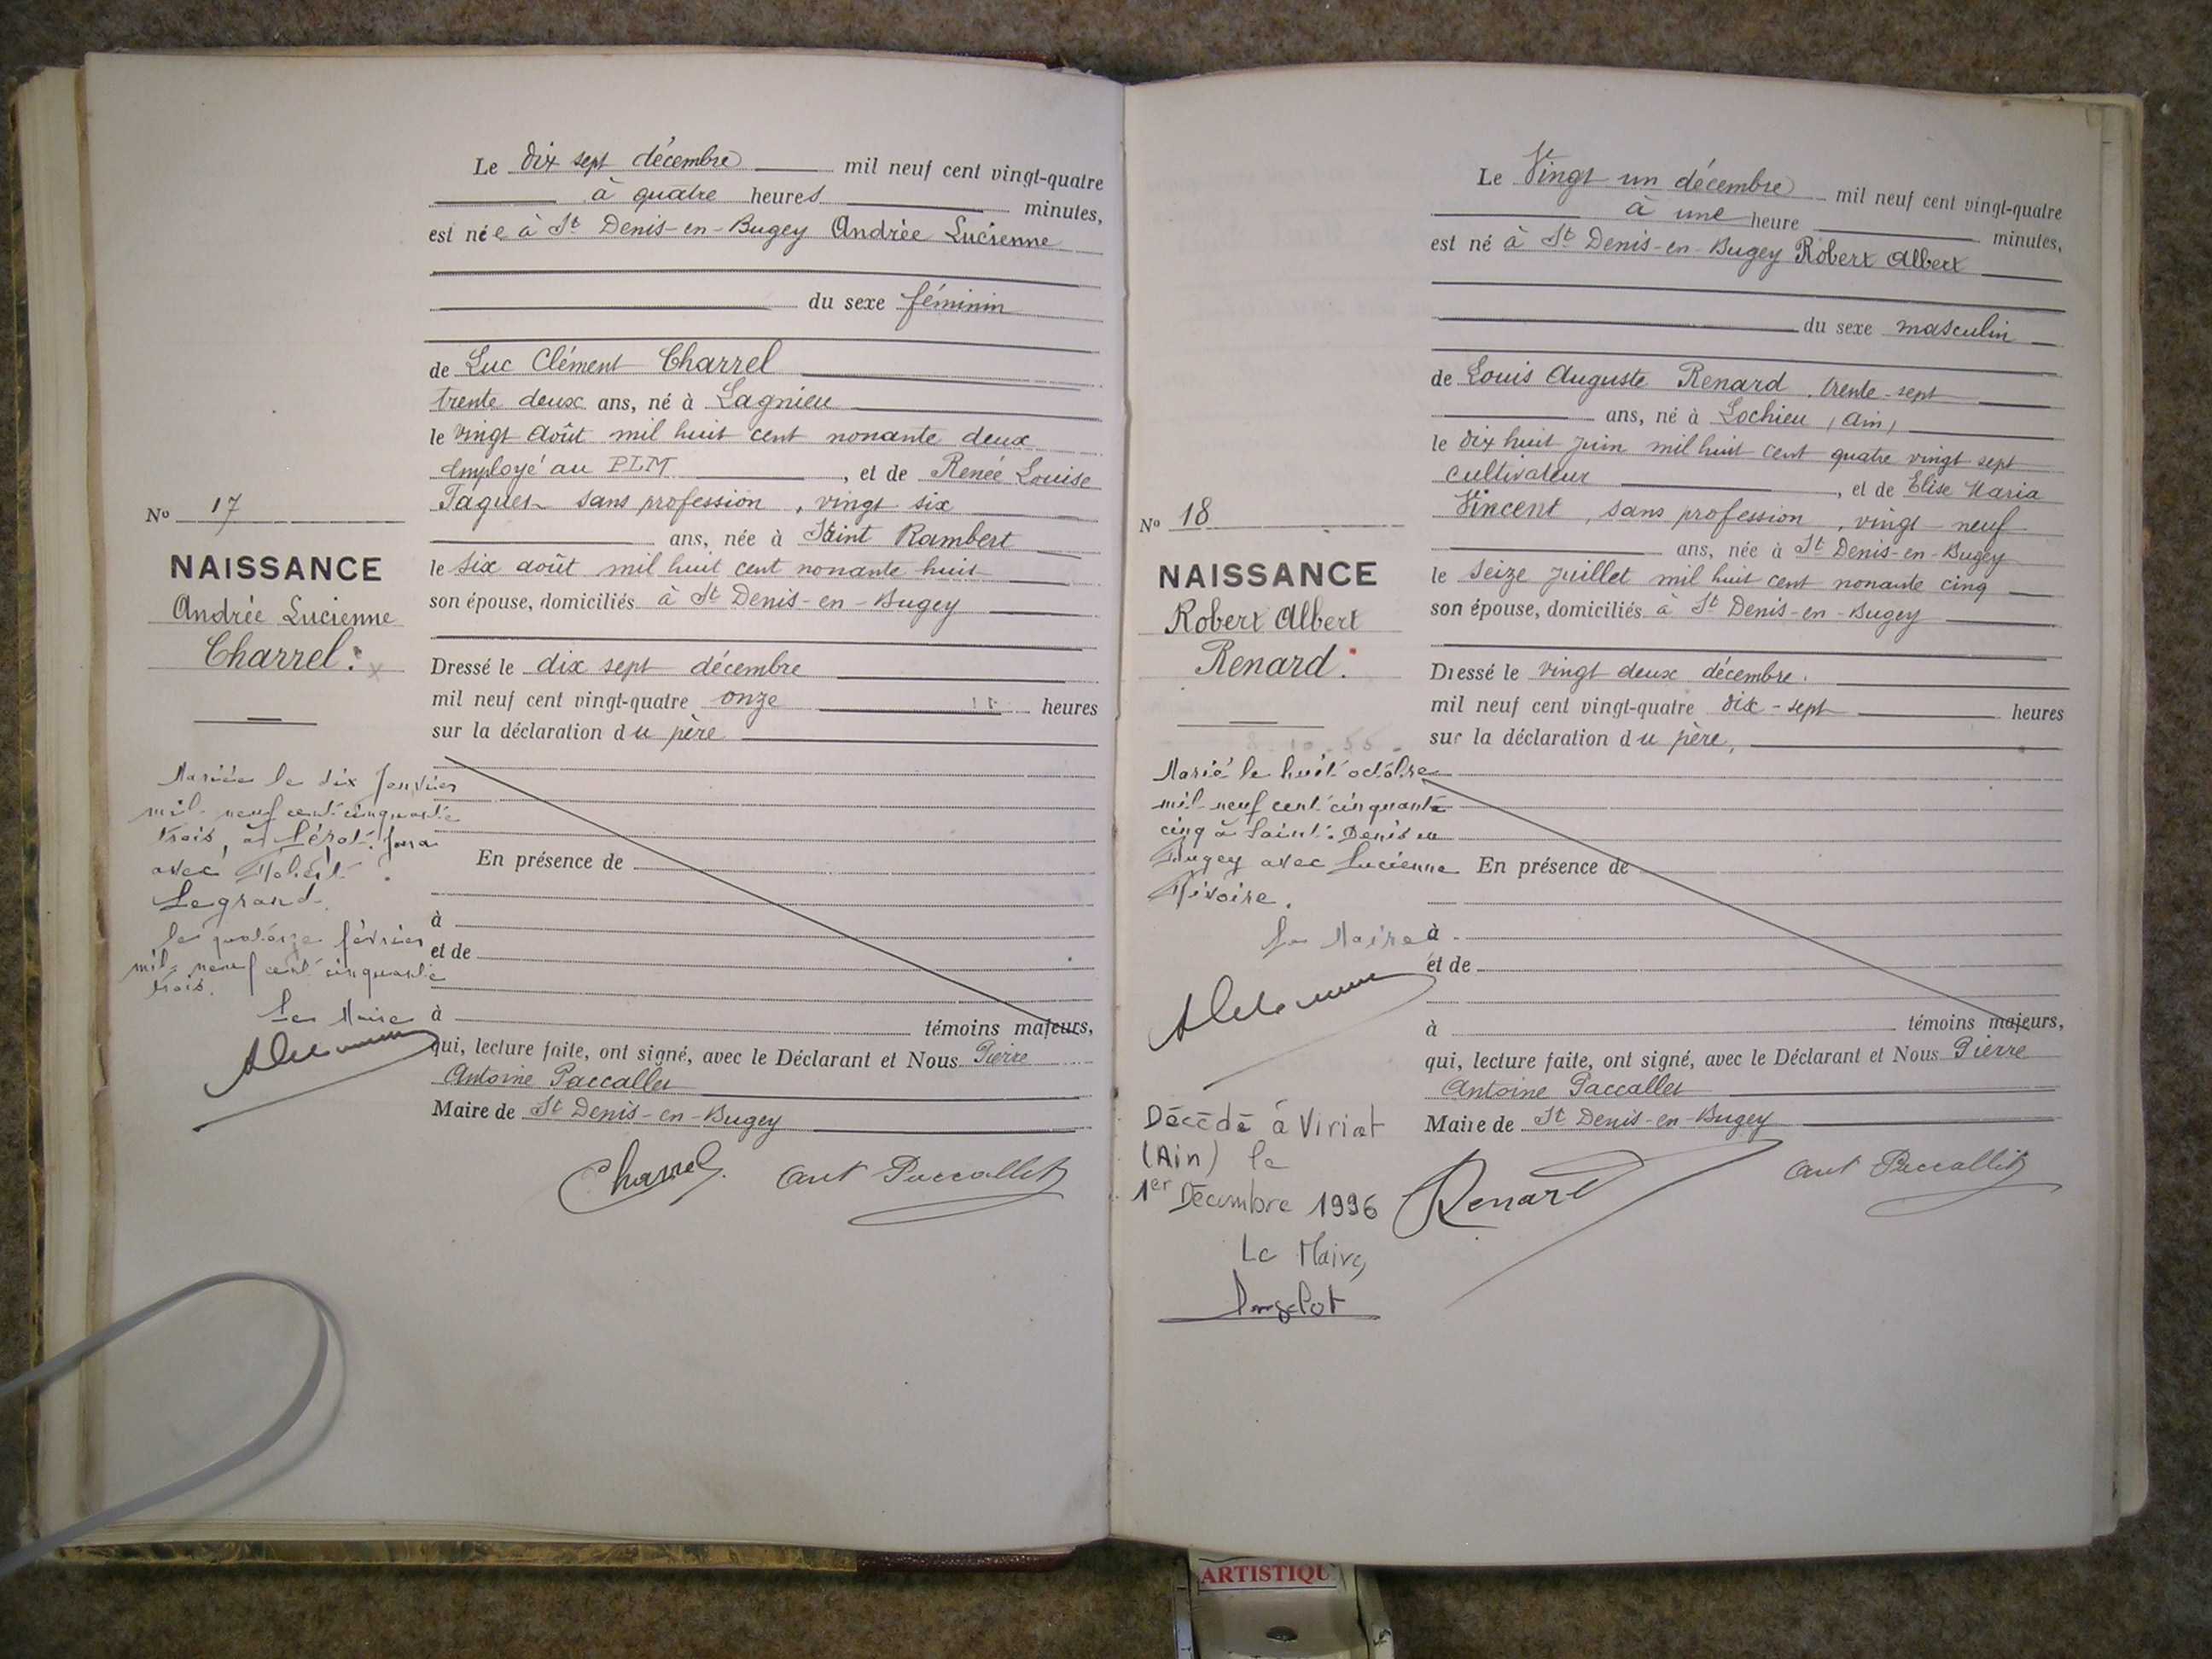 Le dix sept décembre mil neuf cent vingt-quatre
à quatre heures minutes,
est née à St Denis-en-Bugey Andrée Lucienne
du sexe féminin
de Luc Clément Charrel
trente deux ans, né à Lagnieu
le vingt août mil huit cent nonante deux
employé au PLM, et de Renée Louise
sans profession, vingt six
ans, née à Saint Rambert
le six août mil huit cent nonante huit
son épouse, domiciliés à St Denis-en-Bugey
Dressé le dix sept décembre
mil neuf cent vingt-quatre onze heures
sur la déclaration du père
En présence de
à
et de
à témoins majeurs,
qui, lecture faite, ont signé, avec le Déclarant et Nous Pierre
Antoine Paccallet
Maire de St Denis-en-Bugey
Charrel Ant Paccallet
No 17
NAISSANCE
Andrée Lucienne
Charrel
Mariée le dix Janvier
mil neuf cent cinquante
trois, à Jura
avec Robert
Legrand.
le quatorze février
mil neuf cent cinquante
trois.
Le Maire
Le Vingt un décembre mil neuf cent vingt-quatre
à une heure minutes,
est né à St Denis-en-Bugey Robert Albert
du sexe masculin
de Louis Auguste Renard, trente-sept
ans, né à Lochieu (Ain)
le dix huit juin mil huit cent quatre vingt sept
cultivateur, et de Elise Maria
Vincent, sans profession, vingt neuf
ans, née à St Denis-en-Bugey
le seize juillet mil huit cent nonante cinq
son épouse, domiciliés à St Denis-en-Bugey
Dressé le vingt deux décembre
mil neuf cent vingt-quatre dix-sept heures
sur la déclaration du père,
En présence de
à
et de
à témoins majeurs,
qui, lecture faite, ont signé, avec le Déclarant et Nous Pierre
Antoine Paccallet
Maire de St Denis-en-Bugey
Renard Ant Paccallet
No 18
NAISSANCE
Robert Albert
Renard.
Marié le huit octobre
mil neuf cent cinquante
cinq à Saint-Denis en
Bugey avec Lucienne
Rivoire.
Le Maire
Décédé à Viriat
(Ain) le
1er Décembre 1996
Le Maire,
ARTISTIQU